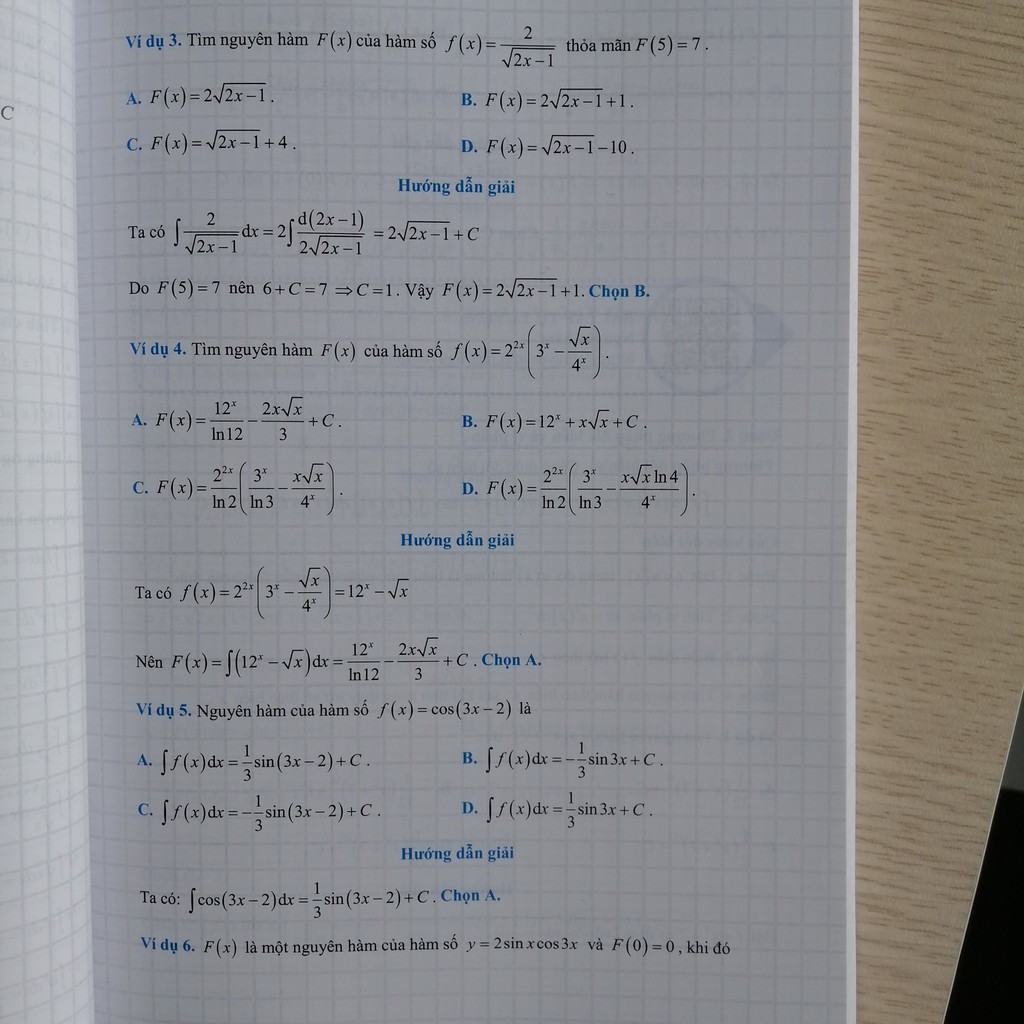 C
Ví dụ 3. Tìm nguyên hàm F(x) của hàm số f(x) = 2/√(2x−1) thỏa mãn F(5) = 7.
A. F(x) = 2√(2x−1). B. F(x) = 2√(2x−1) + 1.
C. F(x) = √(2x−1) + 4. D. F(x) = √(2x−1) − 10.
Hướng dẫn giải
Ta có ∫ 2/√(2x−1) dx = 2∫ d(2x−1)/(2√(2x−1)) = 2√(2x−1) + C
Do F(5) = 7 nên 6 + C = 7 ⇒ C = 1. Vậy F(x) = 2√(2x−1) + 1. Chọn B.
Ví dụ 4. Tìm nguyên hàm F(x) của hàm số f(x) = 2^(2x)(3^x − √x/4^x).
A. F(x) = 12^x/ln12 − 2x√x/3 + C. B. F(x) = 12^x + x√x + C.
C. F(x) = 2^(2x)/ln2 (3^x/ln3 − x√x/4^x). D. F(x) = 2^(2x)/ln2 (3^x/ln3 − x√x ln4/4^x).
Hướng dẫn giải
Ta có f(x) = 2^(2x)(3^x − √x/4^x) = 12^x − √x
Nên F(x) = ∫(12^x − √x)dx = 12^x/ln12 − 2x√x/3 + C. Chọn A.
Ví dụ 5. Nguyên hàm của hàm số f(x) = cos(3x − 2) là
A. ∫f(x)dx = 1/3 sin(3x − 2) + C. B. ∫f(x)dx = −1/3 sin3x + C.
C. ∫f(x)dx = −1/3 sin(3x − 2) + C. D. ∫f(x)dx = 1/3 sin3x + C.
Hướng dẫn giải
Ta có: ∫cos(3x − 2)dx = 1/3 sin(3x − 2) + C. Chọn A.
Ví dụ 6. F(x) là một nguyên hàm của hàm số y = 2sin x cos3x và F(0) = 0, khi đó